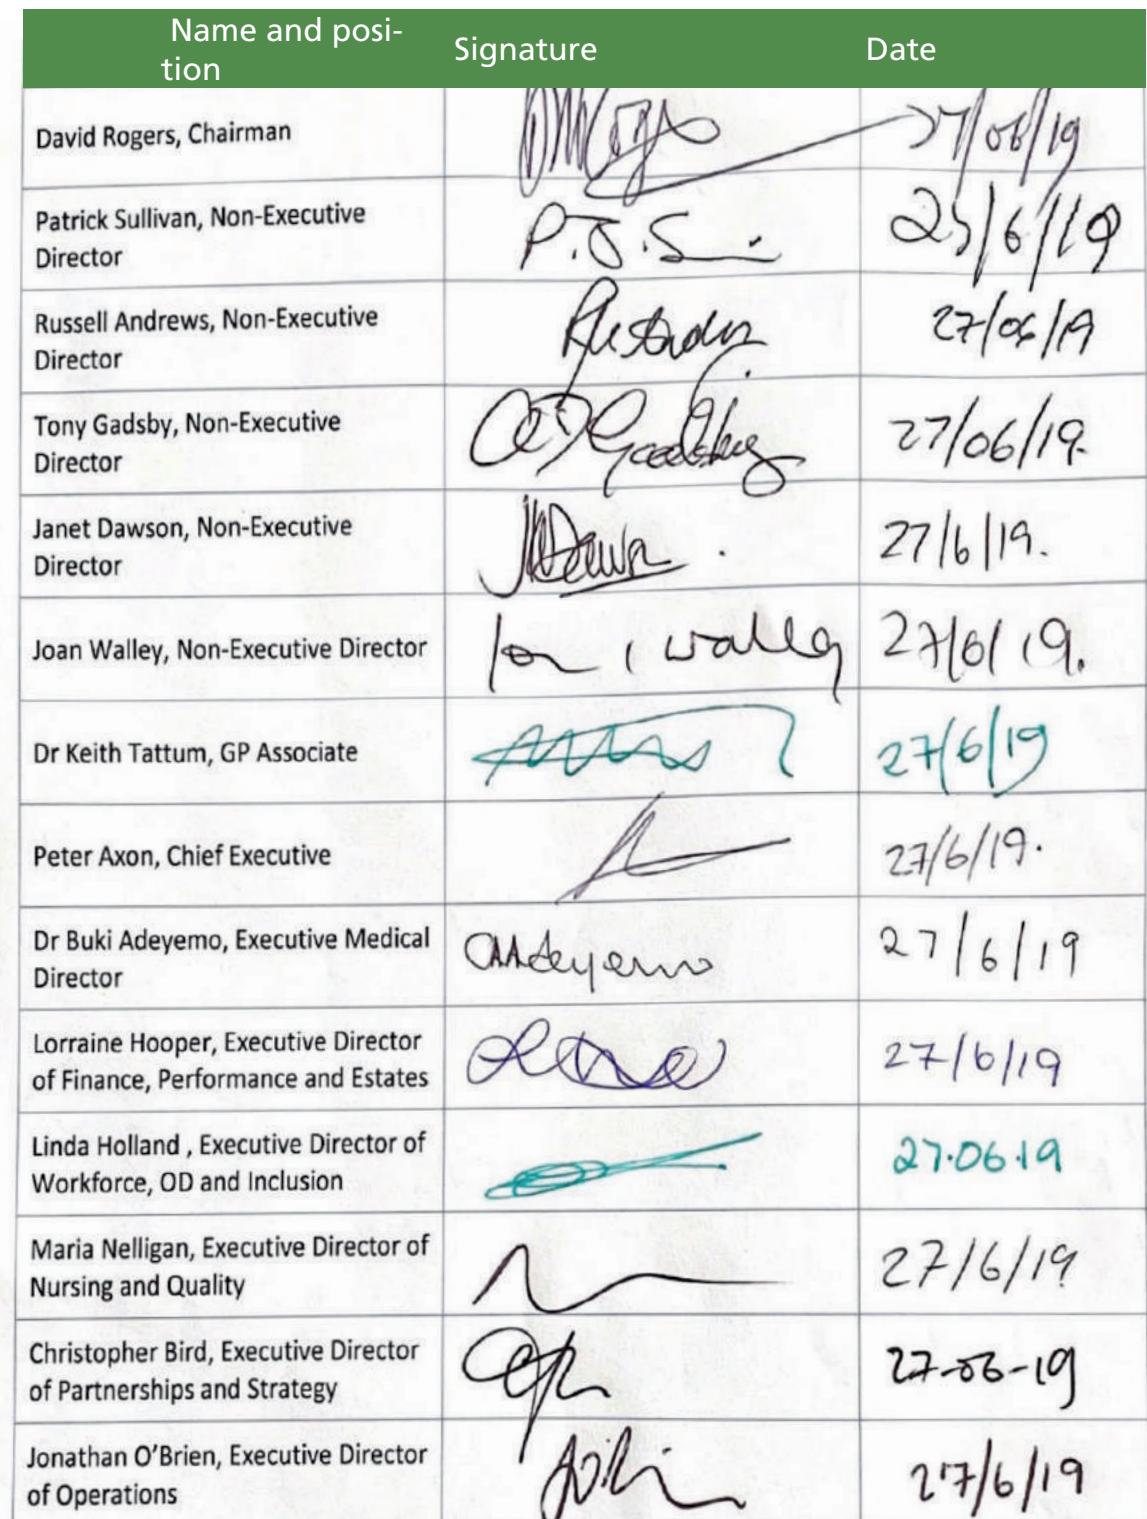 Name and posi-
tion
Signature
Date
David Rogers, Chairman
27/06/19
Patrick Sullivan, Non-Executive
Director
P.J.S
Russell Andrews, Non-Executive
Director
27/06/19
Tony Gadsby, Non-Executive
Director
Gadsby
27/06/19.
Janet Dawson, Non-Executive
Director
27/6/19.
Joan Walley, Non-Executive Director
Walley
27/6/19.
Dr Keith Tattum, GP Associate
27/6/19
Peter Axon, Chief Executive
27/6/19.
Dr Buki Adeyemo, Executive Medical
Director
Adeyemo
27/6/19
Lorraine Hooper, Executive Director
of Finance, Performance and Estates
27/6/19
Linda Holland , Executive Director of
Workforce, OD and Inclusion
27.06.19
Maria Nelligan, Executive Director of
Nursing and Quality
27/6/19
Christopher Bird, Executive Director
of Partnerships and Strategy
27-06-19
Jonathan O'Brien, Executive Director
of Operations
27/6/19